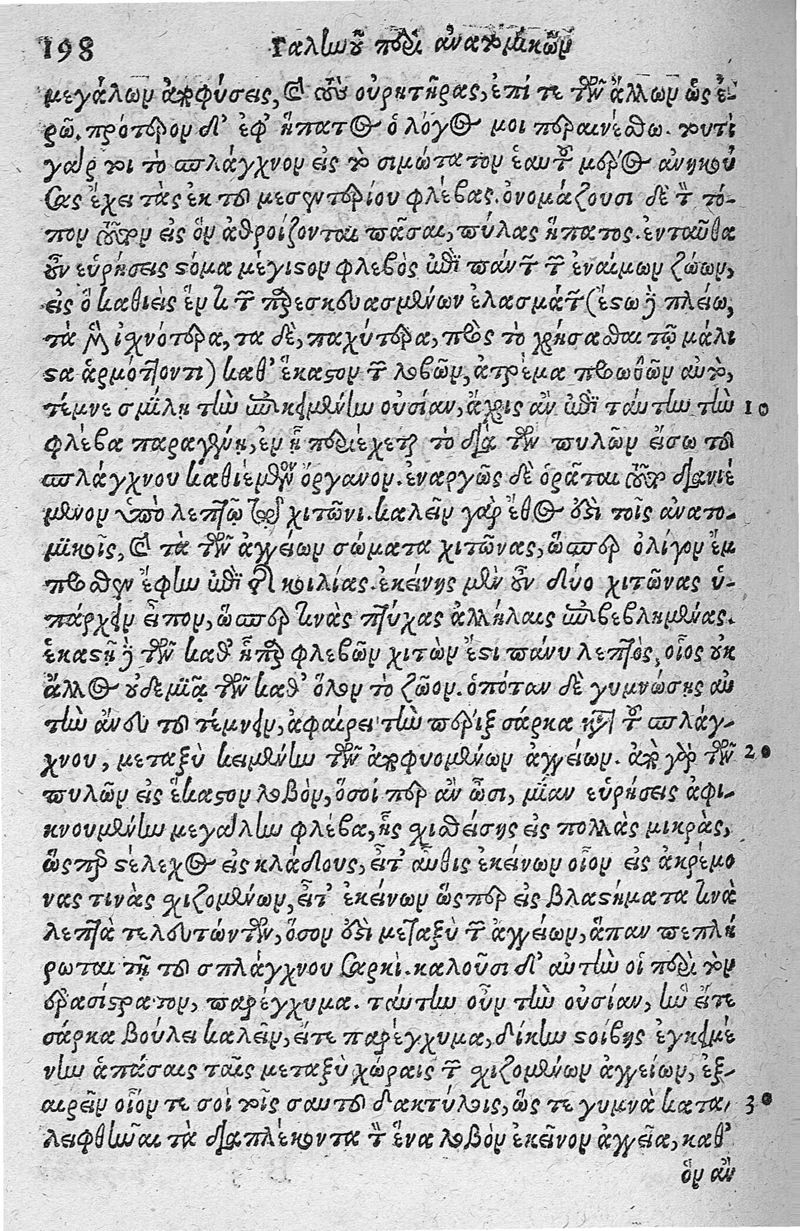 198 Γαληνοῦ περὶ ἀνατομικῶν
μεγάλων ἀποφύσεις, καὶ τοὺς οὐρητῆρας, ἐπί τε τῶν ἄλλων ὡς ἐ-
ρῶ. πρότερον δ' ἐφ' ἥπατος ὁ λόγος μοι περαινέσθω. τουτὶ
γὰρ τοι τὸ σπλάγχνον εἰς τὸ σιμώτατον ἑαυτοῦ μέρος ἀνηκού
σας ἔχει τὰς ἐκ τοῦ μεσεντερίου φλέβας. ὀνομάζουσι δὲ τὸν τό-
πον τοῦτον εἰς ὃν ἀθροίζονται πᾶσαι, πύλας ἥπατος. ἐνταῦθα
οὖν εὑρήσεις στόμα μέγιστον φλεβὸς ἐπὶ πάντων τῶν ἐναίμων ζώων,
εἰς ὃ καθιεὶς ἕν τι τῶν παρεσκευασμένων ἐλασμάτων (ἔστω δὲ πλείω,
τὰ μὲν ἰχνότερα, τα δὲ, παχύτερα, πρὸς τὸ χρήσασθαι τῷ μάλι
στα ἁρμόττοντι) καθ' ἕκαστον τῶν λοβῶν, ἀτρέμα προωθῶν αὐτὸ,
τέμνε σμίλῃ τὴν ἐπικειμένην οὐσίαν, ἄχρις ἂν ἐπὶ ταύτην τὴν 10
φλέβα παραγένῃ, ἐν ᾗ περιέχεται τὸ διὰ τῶν πυλῶν εἴσω τοῦ
σπλάγχνου καθιέμενον ὄργανον. ἐναργῶς δὲ ὁρᾶται τοῦτο διανιέ
μενον ὑπὸ λεπτῷ τῷ χιτῶνι. καλεῖν γὰρ ἔθος ἐστὶ τοῖς ἀνατο-
μικοῖς, καὶ τὰ τῶν ἀγγείων σώματα χιτῶνας, ὥσπερ ὀλίγον ἔμ
προσθεν ἔφην ἐπὶ τῆς κοιλίας. ἐκείνης μὲν οὖν δύο χιτῶνας ὑ-
πάρχειν εἶπον, ὥσπερ τινὰς πτύχας ἀλλήλαις ἐπιβεβλημένας.
ἑκάστη δὲ τῶν καθ' ἧπαρ φλεβῶν χιτὼν ἔστι πάνυ λεπτὸς, οἷος οὐκ
ἄλλος οὐδεμιᾷ τῶν καθ' ὅλον τὸ ζῶον. ὁπόταν δὲ γυμνώσῃς αὐ
τὴν ἄνευ τοῦ τέμνειν, ἀφαίρει τὴν πέριξ σάρκα τοῦ σπλάγ-
χνου, μεταξὺ κειμένην τῶν ἀποφυομένων ἀγγείων. ἀπὸ γὰρ τῶν 20
πυλῶν εἰς ἕκαστον λοβὸν, ὅσοί περ ἂν ὦσι, μίαν εὑρήσεις ἀφι-
κνουμένην μεγάλην φλέβα, ἧς χισθείσης εἰς πολλὰς μικρὰς,
ὥσπερ στέλεχος εἰς κλάδους, εἶτ' αὖθις ἐκείνων οἷον εἰς ἀκρέμο
νας τινὰς σχιζομένων, εἶτ' ἐκείνων ὥσπερ εἰς βλαστήματα τινὰ
λεπτὰ τελευτώντων, ὅσον ἐστὶ μεταξὺ τῶν ἀγγείων, ἅπαν πεπλή
ρωται τῇ τοῦ σπλάγχνου σαρκὶ. καλοῦσι δ' αὐτὴν οἱ περὶ τὸν
ἐρασίστρατον, παρέγχυμα. ταύτην οὖν τὴν οὐσίαν, ἣν εἴτε
σάρκα βούλει καλεῖν, εἴτε παρέγχυμα, δίκην στοιβῆς ἐγκειμέ
νην ἁπάσαις ταῖς μεταξὺ χώραις τῶν σχιζομένων ἀγγείων, ἐξ-
αιρεῖν οἷόν τε σοὶ τοῖς σαυτοῦ δακτύλοις, ὥς τε γυμνὰ κατα- 30
λειφθῆναι τὰ διαπλέκοντα τὸν ἕνα λοβὸν ἐκεῖνον ἀγγεῖα, καθ'
ὃν ἂν